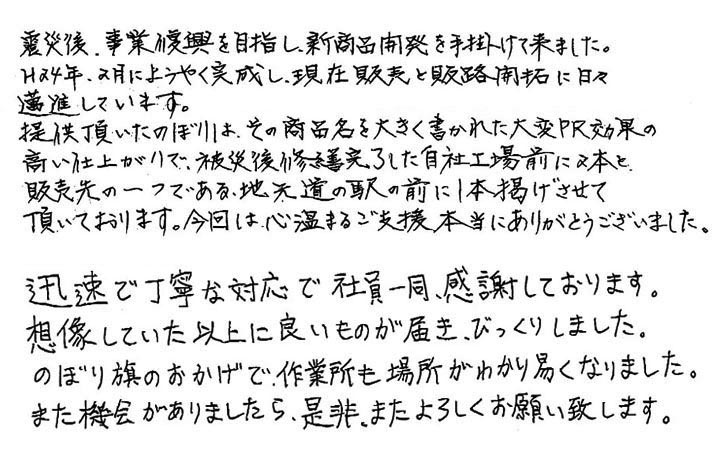 震災後、事業復興を目指し、新商品開発を手掛けて来ました。
H24年、2月にようやく完成し、現在販売と販路開拓に日々
邁進しています。
提供頂いたのぼりは、その商品名を大きく書かれた大変PR効果の
高い仕上がりで、被災後修繕完了した自社工場前に2本と、
販売先の一つである、地元道の駅の前に1本掲げさせて
頂いております。今回は、心温まるご支援、本当にありがとうございました。
迅速で丁寧な対応で社員一同、感謝しております。
想像していた以上に良いものが届き、びっくりしました。
のぼり旗のおかげで、作業所も場所がわかり易くなりました。
また機会がありましたら、是非、またよろしくお願い致します。